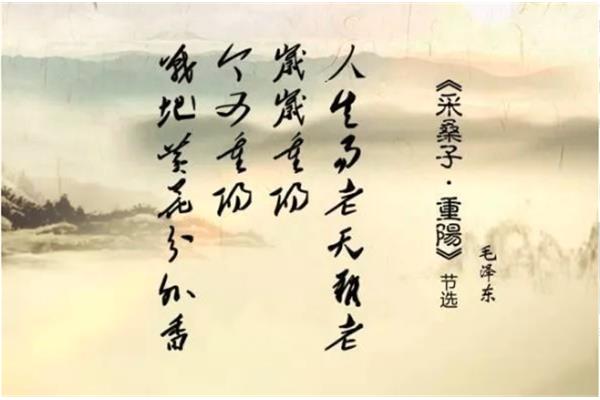 《采桑子·重陽》节选
毛泽东
人生易老天難老
歲歲重陽
今又重陽
戰地黄花分外香